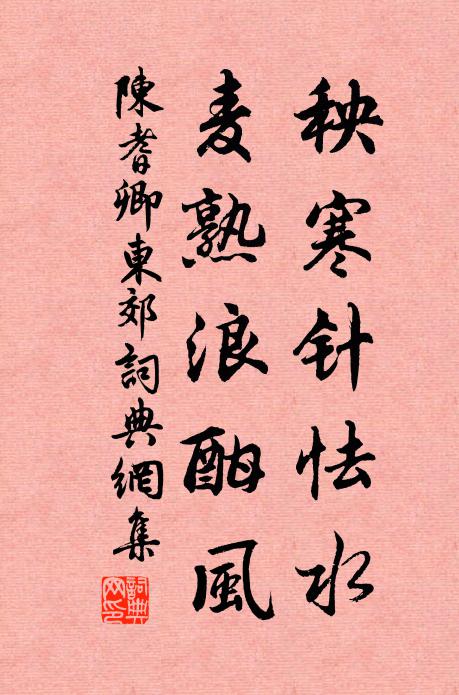 秧寒针怯水
麦熟浪酣風
陳耆卿東郊詞典網集
詞典網印